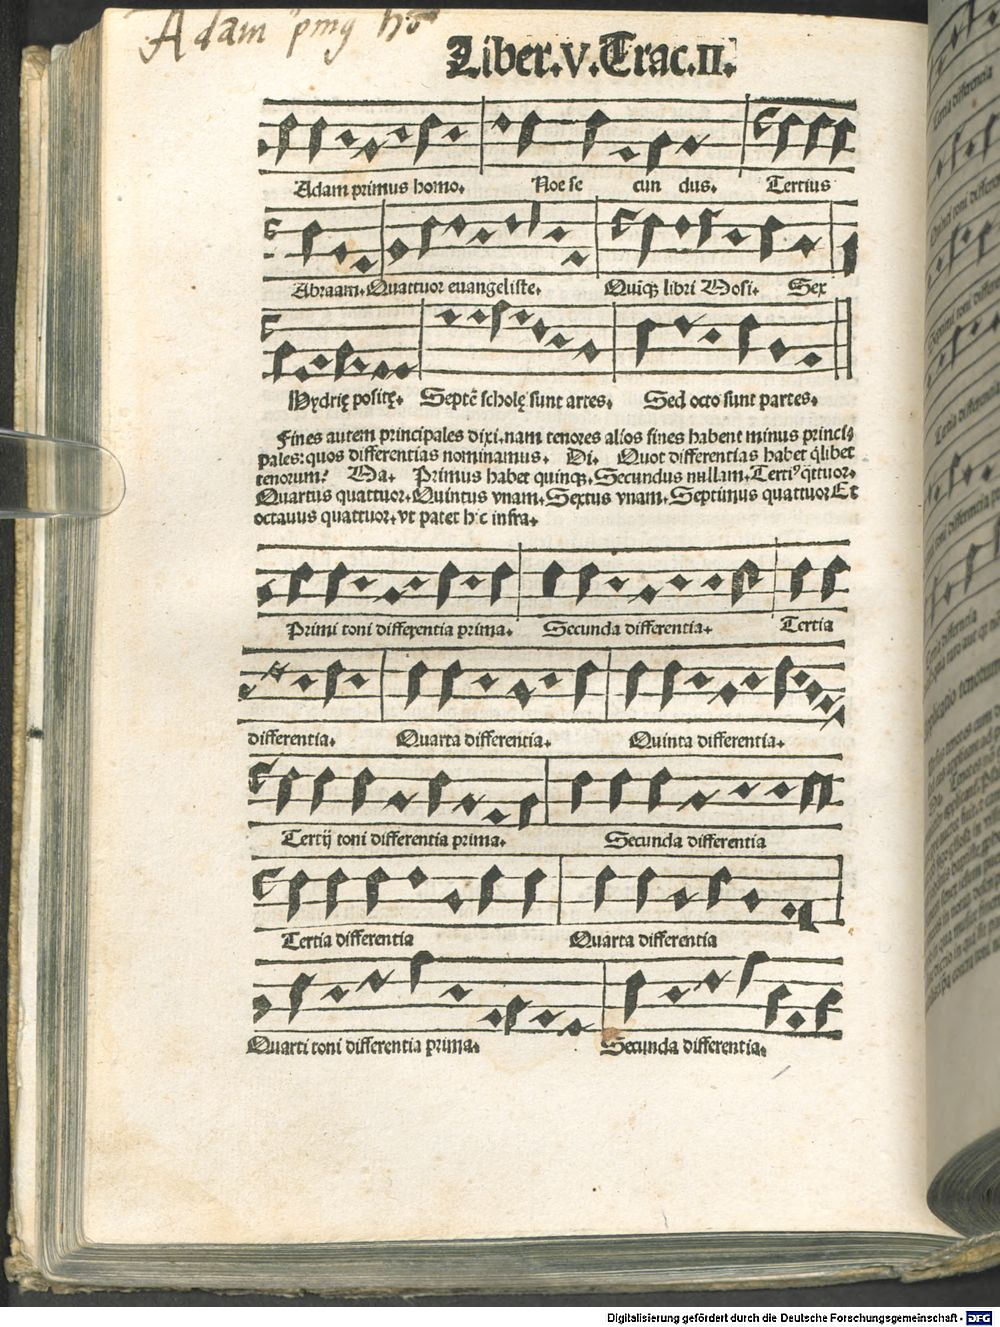 Adam pmꝰ hō
Liber.V.Trac.II.
Adam primus homo. Noe se cun dus. Tertius
Abraam. Quattuor euangeliste. Quīqꝫ libri Mosi. Sex
Hydrię positę. Septē scholę sunt artes. Sed octo sunt partes.
Fines autem principales dixi.nam tenores alios fines habent minus princi
pales:quos differentias nominamus. Di. Quot differentias habet q̄libet
tenorum? Ma. Primus habet quinqꝫ.Secundus nullam.Tertiꝰ q̄ttuor.
Quartus quattuor.Quintus vnam.Sextus vnam.Septimus quattuor Et
octauus quattuor.vt patet hic infra.
Primi toni differentia prima. Secunda differentia. Tertia
differentia. Quarta differentia. Quinta differentia.
Tertij toni differentia prima. Secunda differentia
Tertia differentia Quarta differentia
Quarti toni differentia prima. Secunda differentia.
Digitalisierung gefördert durch die Deutsche Forschungsgemeinschaft - DFG